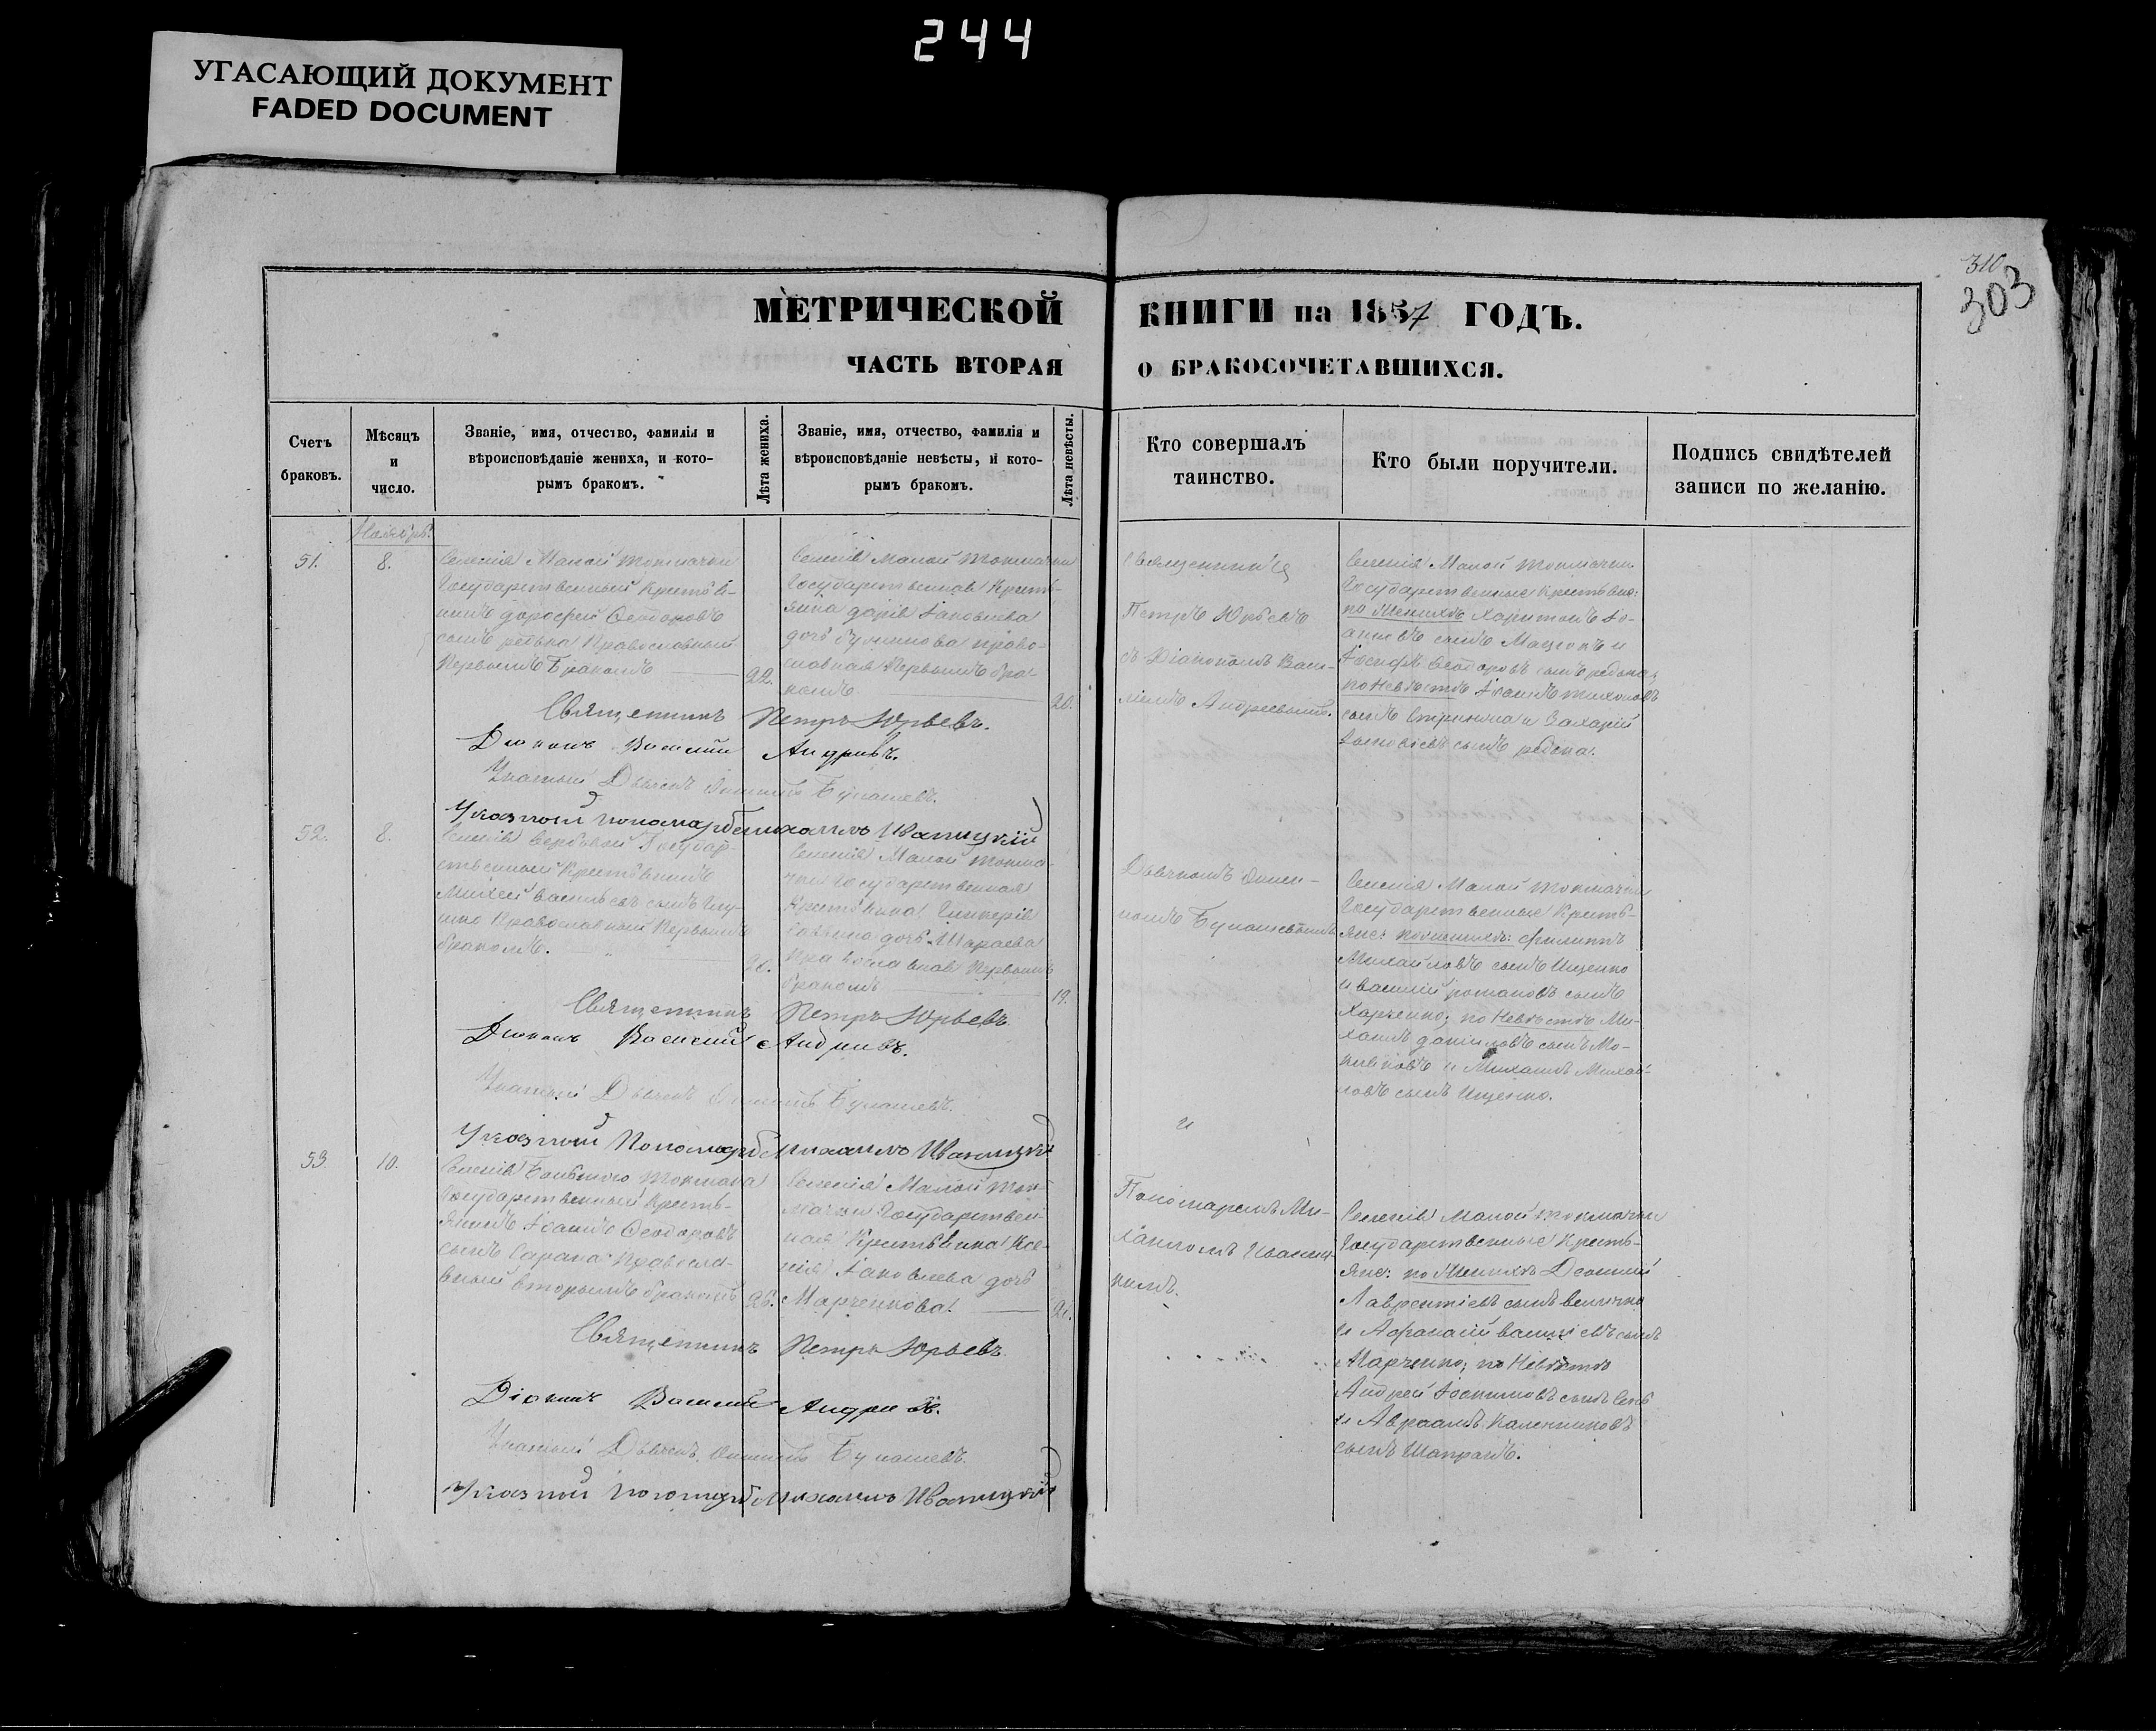 244
УГАСАЮЩИЙ ДОКУМЕНТ
FADED DOCUMENT
310
303
МЕТРИЧЕСКОЙ КНИГИ на 1857 ГОДЪ.
ЧАСТЬ ВТОРАЯ О БРАКОСОЧЕТАВШИХСЯ.
Счетъ
браковъ.
Мѣсяцъ
и
число.
Званіе, имя, отчество, фамилія и
вѣроисповѣданіе жениха, и кото-
рымъ бракомъ.
Лѣта жениха.
Званіе, имя, отчество, фамилія и
вѣроисповѣданіе невѣсты, и кото-
рымъ бракомъ.
Лѣта невѣсты.
Кто совершалъ
таинство.
Кто были поручители.
Подпись свидѣтелей
записи по желанію.
Ноябрь.
51.
8.
Селенія Малой Токмачки
Государственный Крестья-
нинъ Дорофей Ѳеодоровъ
сынъ редька Православный
Первымъ Бракомъ
22.
Селенія Малой Токмачки
Государственная Кресть-
янка Дарія Іаковлева
дочь право-
славная Первымъ бра-
комъ
20.
Священникъ
Петръ Юрьевъ
съ Діакономъ Васи-
ліемъ Андреевымъ.
Селенія Малой Токмачки
Государственные Крестьяне:
по Женихѣ Харитонъ Іо-
анновъ сынъ и
Іосифъ Ѳеодоровъ сынъ редька,
по Невѣстѣ Іоаннъ Тихоновъ
сынъ и Захарій
сынъ редька.
Священникъ Петръ Юрьевъ.
Діаконъ Василий Андреевъ.
Указный Дьячекъ
Указной пономарь Михаилъ Иваницкій
52.
8.
Селенія Вербовой Государ-
ственный Крестьянинъ
Михей Васильевъ сынъ
Православный Первымъ
бракомъ.
Селенія Малой Токма-
чки Государственная
Крестьянка Гликерія
Саввина дочь Шараева
Православная Первымъ
бракомъ
19.
Дьячкомъ
Селенія Малой Токмачки
Государственные Кресть-
яне: по женихѣ: Филиппъ
Михайловъ сынъ Ищенко
и Василій романовъ сынъ
Харченко; по Невѣстѣ Ми-
хаилъ Даниловъ сынъ
и Михаилъ Михай-
ловъ сынъ Ищенко.
Священникъ Петръ Юрьевъ
Діаконъ Василий Андреевъ.
Указный Дьячекъ
Указной Пономарь Михаилъ Иваницкій
и
53.
10.
Селенія Большого Токмака
Государственный Кресть-
янинъ Іоаннъ Ѳеодоровъ
сынъ Сарана Правосла-
вный вторымъ бракомъ
26.
Селенія Малой Ток-
мачки Государствен-
ная Крестьянка Ксе-
нія Іаковлева дочь
Марченкова.
Пономаремъ Ми-
хаиломъ Иваниц-
кимъ.
Селенія Малой Токмачки
Государственные Кресть-
яне: по Женихѣ
Лаврентіевъ сынъ величко
и Афанасій Василіевъ сынъ
Марченко; по Невѣстѣ
Андрей сынъ
и Авраамъ Калениковъ
сынъ
Священникъ Петръ Юрьевъ
Діаконъ Василий Андреевъ.
Указный Дьячекъ
Указной пономарь Михаилъ Иваницкій